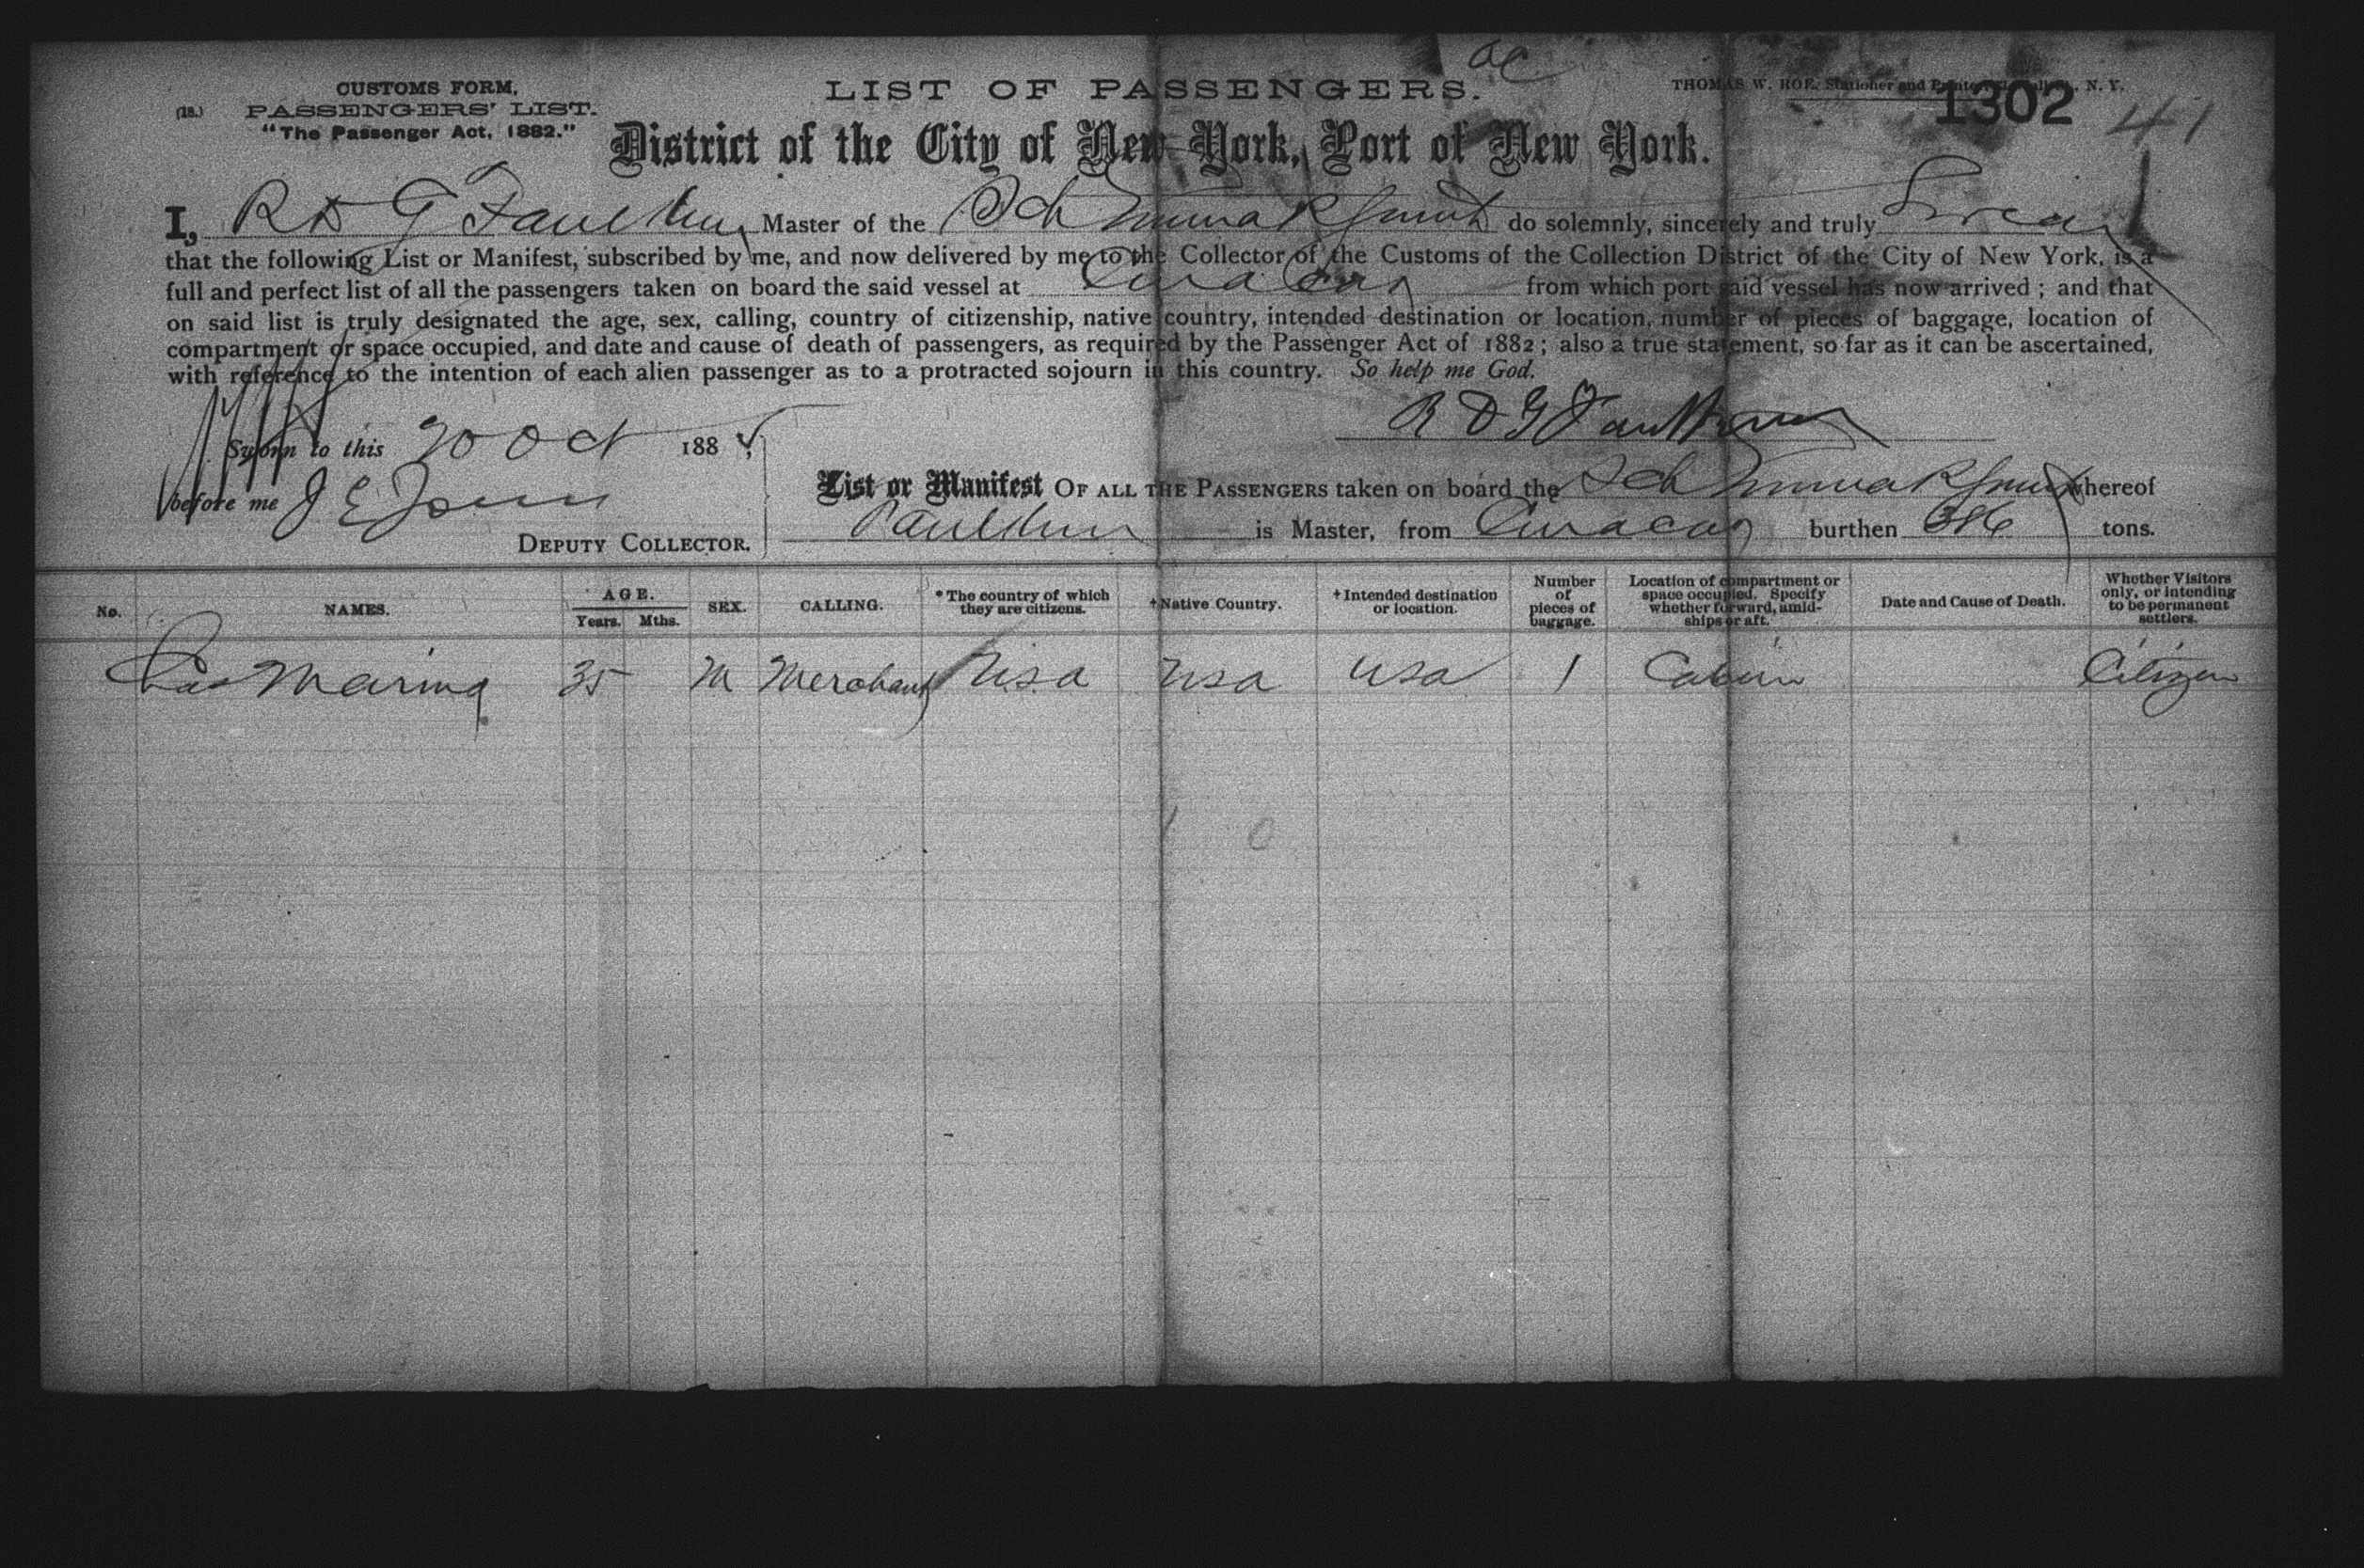 ac
CUSTOMS FORM,
(18.) PASSENGERS' LIST.
"The Passenger Act, 1882."
LIST OF PASSENGERS.
THOMAS W. ROE, Stationer and N. Y.
1302
41
District of the City of New York, Port of New York.
I, R D G Faulkner Master of the Sch Emma K Smith do solemnly, sincerely and truly Swear
that the following List or Manifest, subscribed by me, and now delivered by me to the Collector of the Customs of the Collection District of the City of New York, is a
full and perfect list of all the passengers taken on board the said vessel at Curacao from which port said vessel has now arrived ; and that
on said list is truly designated the age, sex, calling, country of citizenship, native country, intended destination or location, number of pieces of baggage, location of
compartment or space occupied, and date and cause of death of passengers, as required by the Passenger Act of 1882 ; also a true statement, so far as it can be ascertained,
with reference to the intention of each alien passenger as to a protracted sojourn in this country. So help me God.
R D G
Sworn to this 20 Oct 188
before me J E Jones
DEPUTY COLLECTOR.
List or Manifest OF ALL THE PASSENGERS taken on board the Sch Emma K Smith whereof
Faulkner is Master, from Curacao burthen 386 tons.
No. NAMES. AGE. Years. Mths. SEX. CALLING. *The country of which they are citizens. †Native Country. †Intended destination or location. Number of pieces of baggage. Location of compartment or space occupied. Specify whether forward, amidships or aft. Date and Cause of Death. Whether Visitors only, or intending to be permanent settlers.
35 M Merchant Usa Usa Usa 1 Cabin Citizen
1 0